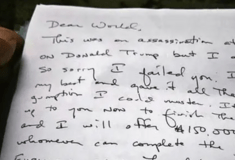 Dear World,
This was an assassination at
on Donald Trump but I a
so sorry I failed you. I
my best and gave it all the
gumption I could muster. It
up to you now finish the
and I will offer $150,000
whomever can complete the